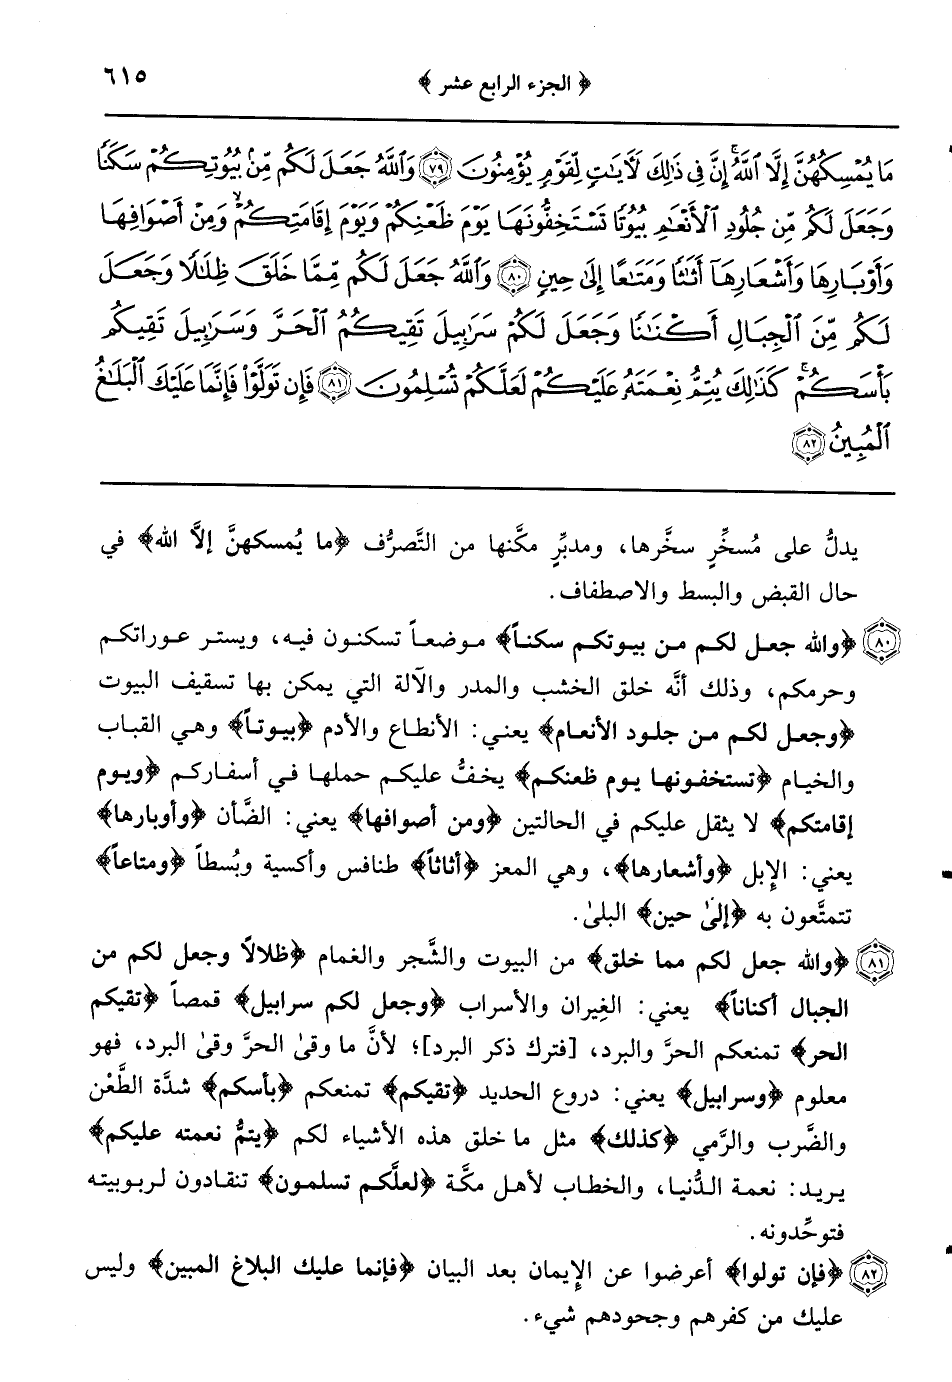 ﴿ الجزء الرابع عشر ﴾ ٦١٥
مَا يُمْسِكُهُنَّ إِلَّا ٱللَّهُ ۚ إِنَّ فِى ذَٰلِكَ لَـَٔايَٰتٍ لِّقَوْمٍ يُؤْمِنُونَ ٧٩ وَٱللَّهُ جَعَلَ لَكُم مِّنۢ بُيُوتِكُمْ سَكَنًا
وَجَعَلَ لَكُم مِّن جُلُودِ ٱلْأَنْعَٰمِ بُيُوتًا تَسْتَخِفُّونَهَا يَوْمَ ظَعْنِكُمْ وَيَوْمَ إِقَامَتِكُمْ ۙ وَمِنْ أَصْوَافِهَا
وَأَوْبَارِهَا وَأَشْعَارِهَآ أَثَٰثًا وَمَتَٰعًا إِلَىٰ حِينٍ ٨٠ وَٱللَّهُ جَعَلَ لَكُم مِّمَّا خَلَقَ ظِلَٰلًا وَجَعَلَ
لَكُم مِّنَ ٱلْجِبَالِ أَكْنَٰنًا وَجَعَلَ لَكُمْ سَرَٰبِيلَ تَقِيكُمُ ٱلْحَرَّ وَسَرَٰبِيلَ تَقِيكُم
بَأْسَكُمْ ۚ كَذَٰلِكَ يُتِمُّ نِعْمَتَهُۥ عَلَيْكُمْ لَعَلَّكُمْ تُسْلِمُونَ ٨١ فَإِن تَوَلَّوْا۟ فَإِنَّمَا عَلَيْكَ ٱلْبَلَٰغُ
ٱلْمُبِينُ ٨٢
يدلُّ على مُسخِّرٍ سخَّرها، ومدبِّرٍ مكَّنها من التَّصرُّف ﴿ما يُمسكهنَّ إلاَّ الله﴾ في
حال القبض والبسط والاصطفاف.
٨٠ ﴿والله جعل لكم من بيوتكم سكناً﴾ موضعاً تسكنون فيه، ويستر عوراتكم
وحرمكم، وذلك أنَّه خلق الخشب والمدر والآلة التي يمكن بها تسقيف البيوت
﴿وجعل لكم من جلود الأنعام﴾ يعني: الأنطاع والأدم ﴿بيوتاً﴾ وهي القباب
والخيام ﴿تستخفونها يوم ظعنكم﴾ يخفُّ عليكم حملها في أسفاركم ﴿ويوم
إقامتكم﴾ لا يثقل عليكم في الحالتين ﴿ومن أصوافها﴾ يعني: الضَّأن ﴿وأوبارها﴾
يعني: الإبل ﴿وأشعارها﴾، وهي المعز ﴿أثاثاً﴾ طنافس وأكسية وبُسطاً ﴿ومتاعاً﴾
تتمتَّعون به ﴿إلىٰ حين﴾ البلىٰ.
٨١ ﴿والله جعل لكم مما خلق﴾ من البيوت والشَّجر والغمام ﴿ظلالاً وجعل لكم من
الجبال أكناناً﴾ يعني: الغِيران والأسراب ﴿وجعل لكم سرابيل﴾ قمصاً ﴿تقيكم
الحر﴾ تمنعكم الحرَّ والبرد، [فترك ذكر البرد]؛ لأنَّ ما وقىٰ الحرَّ وقىٰ البرد، فهو
معلوم ﴿وسرابيل﴾ يعني: دروع الحديد ﴿تقيكم﴾ تمنعكم ﴿بأسكم﴾ شدَّة الطَّعْن
والضَّرب والرَّمي ﴿كذلك﴾ مثل ما خلق هذه الأشياء لكم ﴿يتمُّ نعمته عليكم﴾
يريد: نعمة الدُّنيا، والخطاب لأهل مكَّة ﴿لعلَّكم تسلمون﴾ تنقادون لربوبيته
فتوحِّدونه.
٨٢ ﴿فإن تولوا﴾ أعرضوا عن الإيمان بعد البيان ﴿فإنما عليك البلاغ المبين﴾ وليس
عليك من كفرهم وجحودهم شيء.